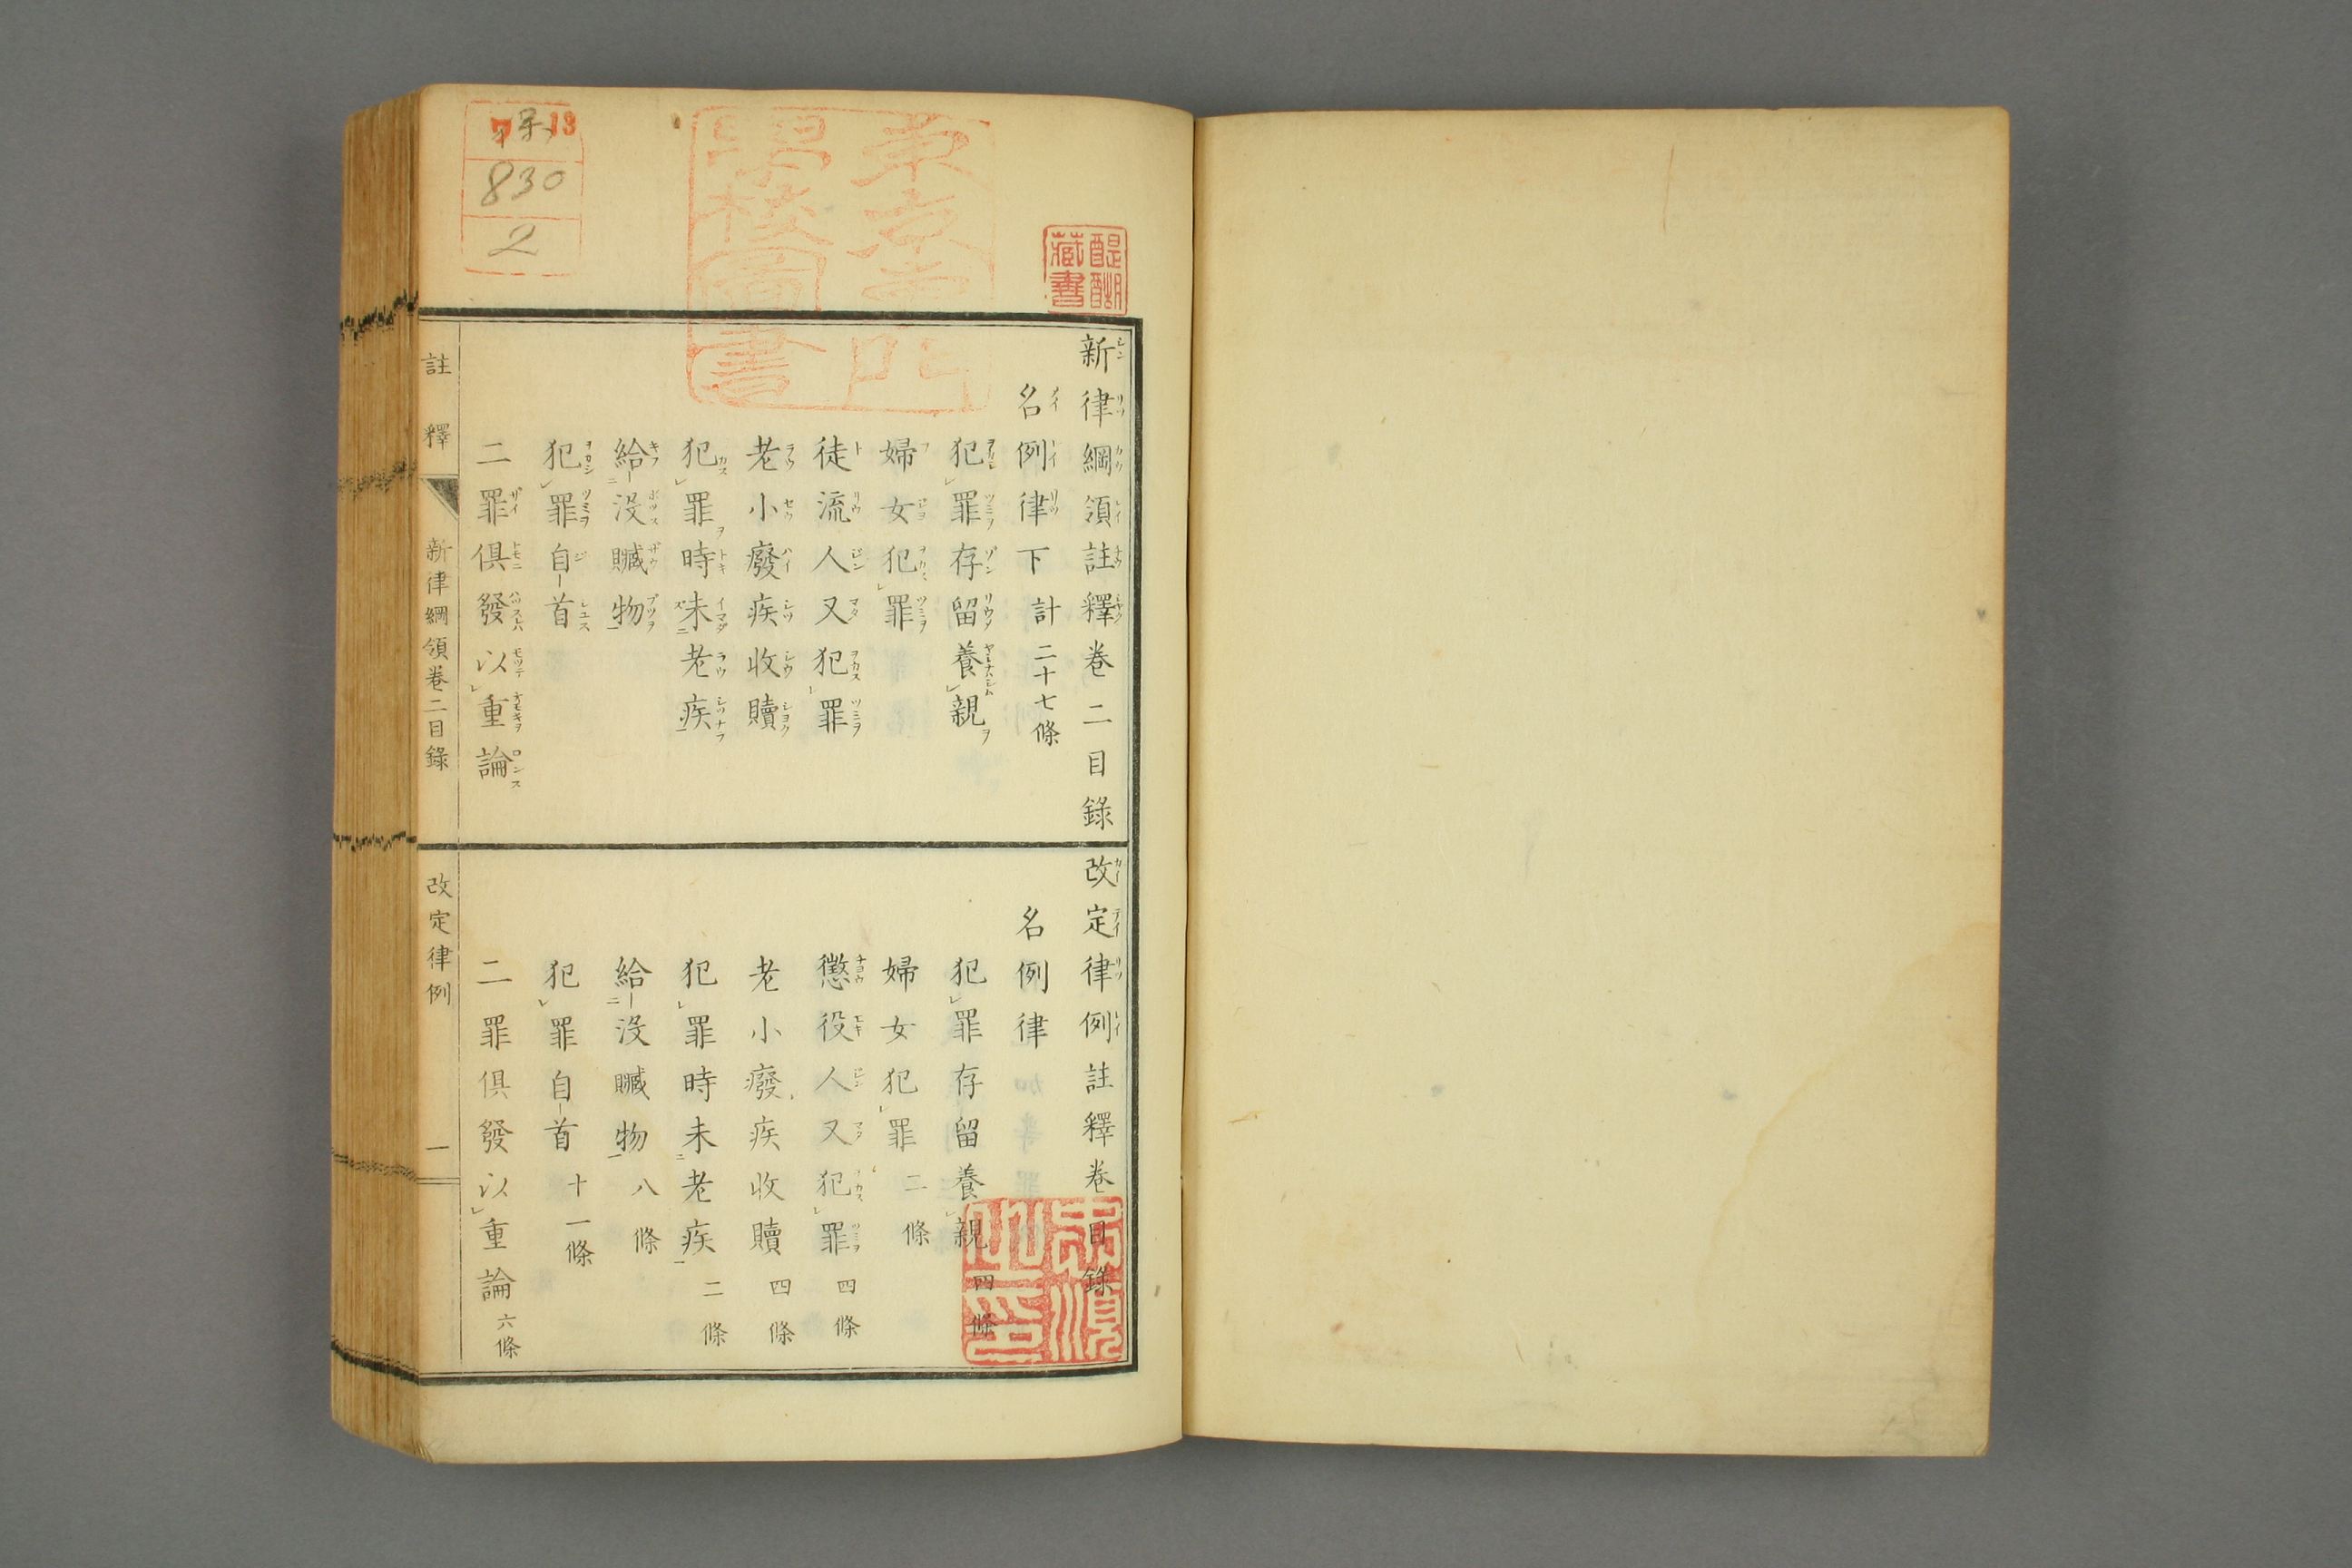 新律綱領註釋巻二目錄
名例律下 計二十七條
犯罪存留養親
婦女犯罪
徒流人又犯罪
老小癈疾收贖
犯罪時未老疾
給没贓物
犯罪自首
二罪俱發以重論
改定律例註釋巻目錄
名例律
犯罪存留養親 四條
婦女犯罪 二條
懲役人又犯罪 四條
老小癈疾收贖 四條
犯罪時未老疾 二條
給没贓物 八條
犯罪自首 十一條
二罪俱發以重論 六條
註釋 新律綱領巻二目錄 改定律例 一
醍醐藏書
13
830
2